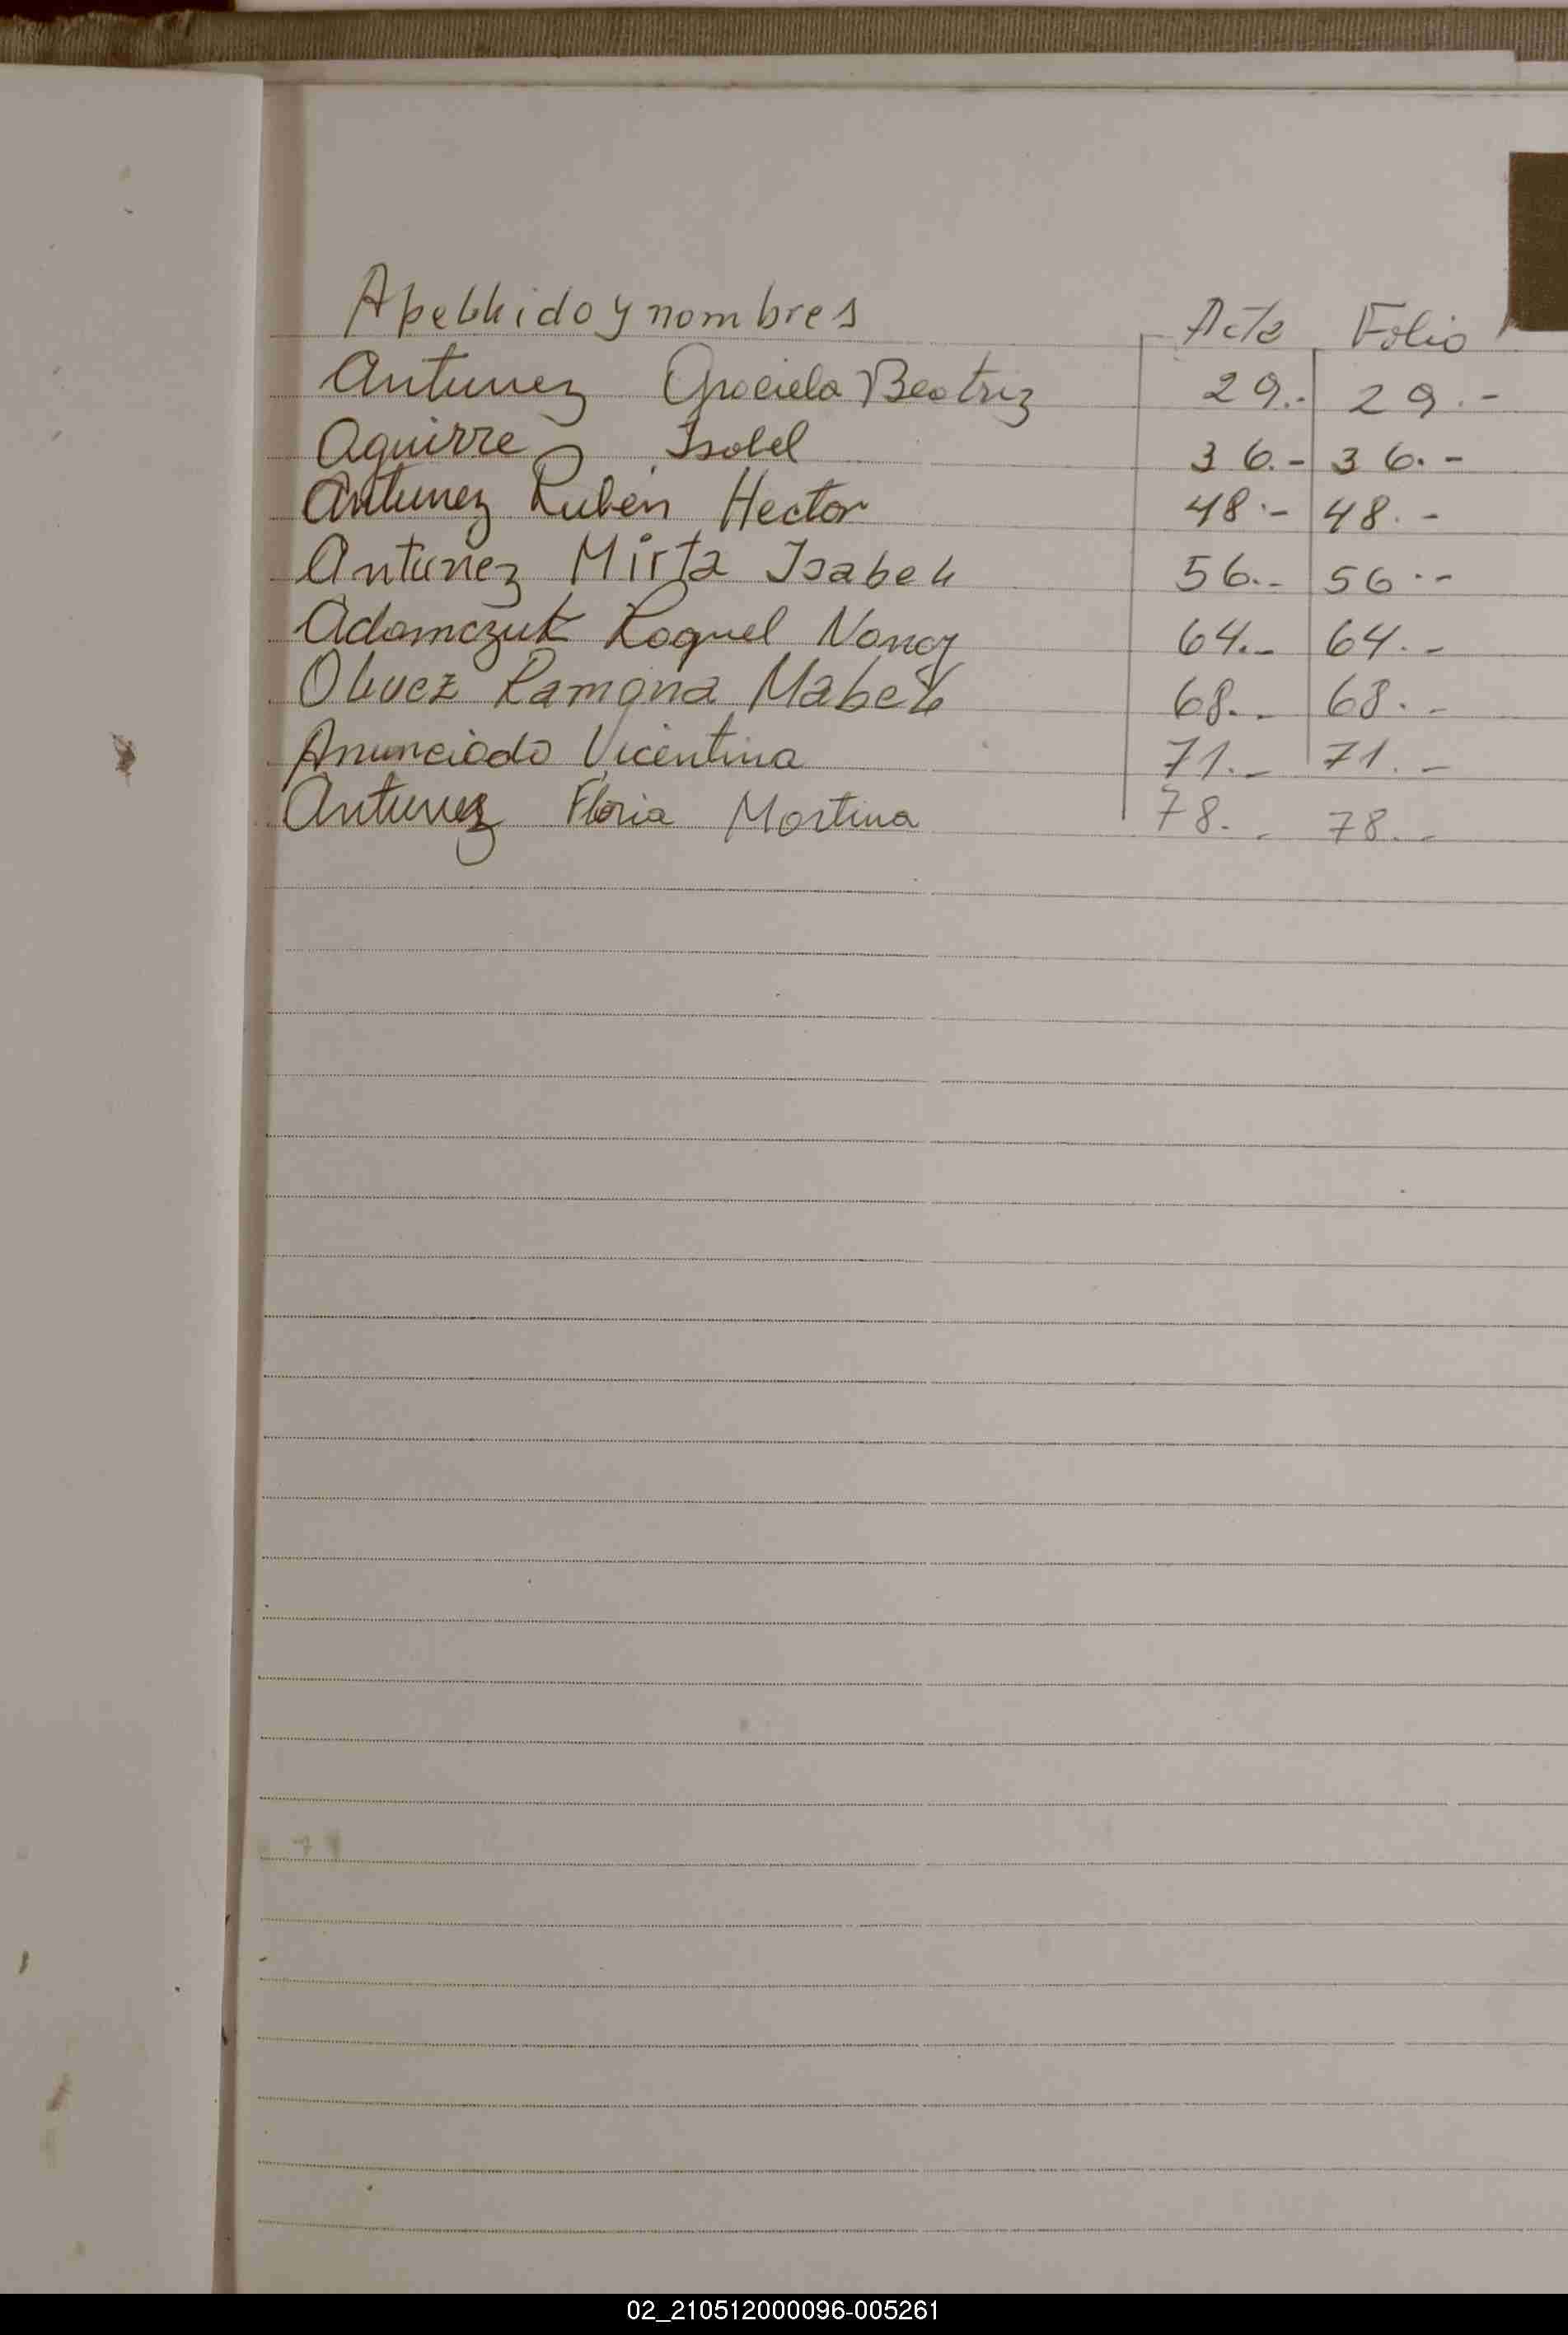 Apellido y nombres Acta Folio
Antunez Graciela Beatriz 29.- 29.-
Aguirre Isabel 36.- 36.-
Antunez Rubén Hector 48.- 48.-
Antunez Mirta Isabel 56.- 56.-
Adamczuk Raquel Nancy 64.- 64.-
Olivez Ramona Mabel 68.- 68.-
Anunciado Vicentina 71.- 71.-
Antunez Floria Martina 78.- 78.-
02_210512000096-005261